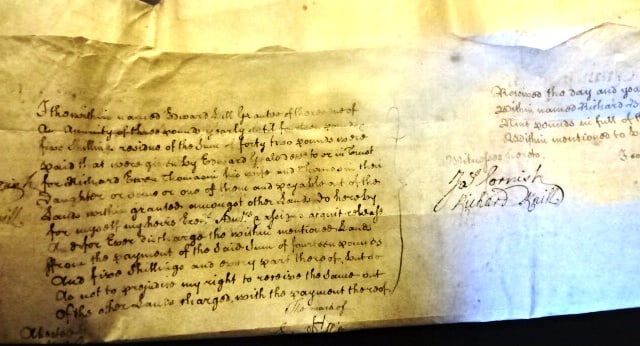 I the within named Edward Gill Grantee of the rent of
An Annuity of three pounds yearly until fourteen pounds
five shillings residue of the Sum of forty two pounds were
paid that were given by Edward to or in trust
for Richard Thomasin his wife and Thomasin their
Daughter or some or one of them and payable out of the
Lands within granted amongst other Lands do hereby
for myself my heirs Exers Admrs & assigns acquit release
And for Ever discharge the within mentioned Lands
ffrom the payment of the said Sum of fourteen pounds
And five shillings and every part thereof, but so
As not to prejudice my right to receive the same out
of the other Lands charged with the payment thereof
The mark of
Received the day and yea
Within named Richard
Nine pounds in full of th
Within mentioned to be
Witnesses hereto.
Jas Cornish
Richard Knill